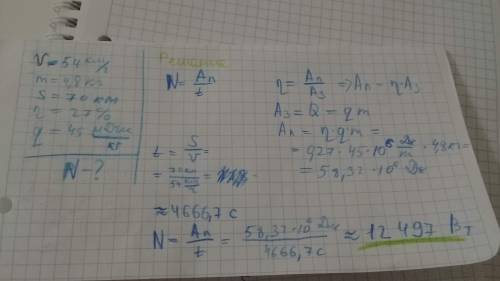 V=54 км/ч
m=4,8 кг
S=70 км
η=27%
q=45 МДж/кг
N-?
Решение
N=Aп/t
t=S/V=
=70км/54 км/ч=
≈4666,7 с
η=Aп/Aз ⇒Aп-η·Aз
Aз=Q=qm
Aп=ηqm=
=0,27·45·10⁶ Дж/кг·4,8кг=
=58,32·10⁶ Дж
N=Aп/t=58,32·10⁶ Дж/4666,7с≈12 497 Вт